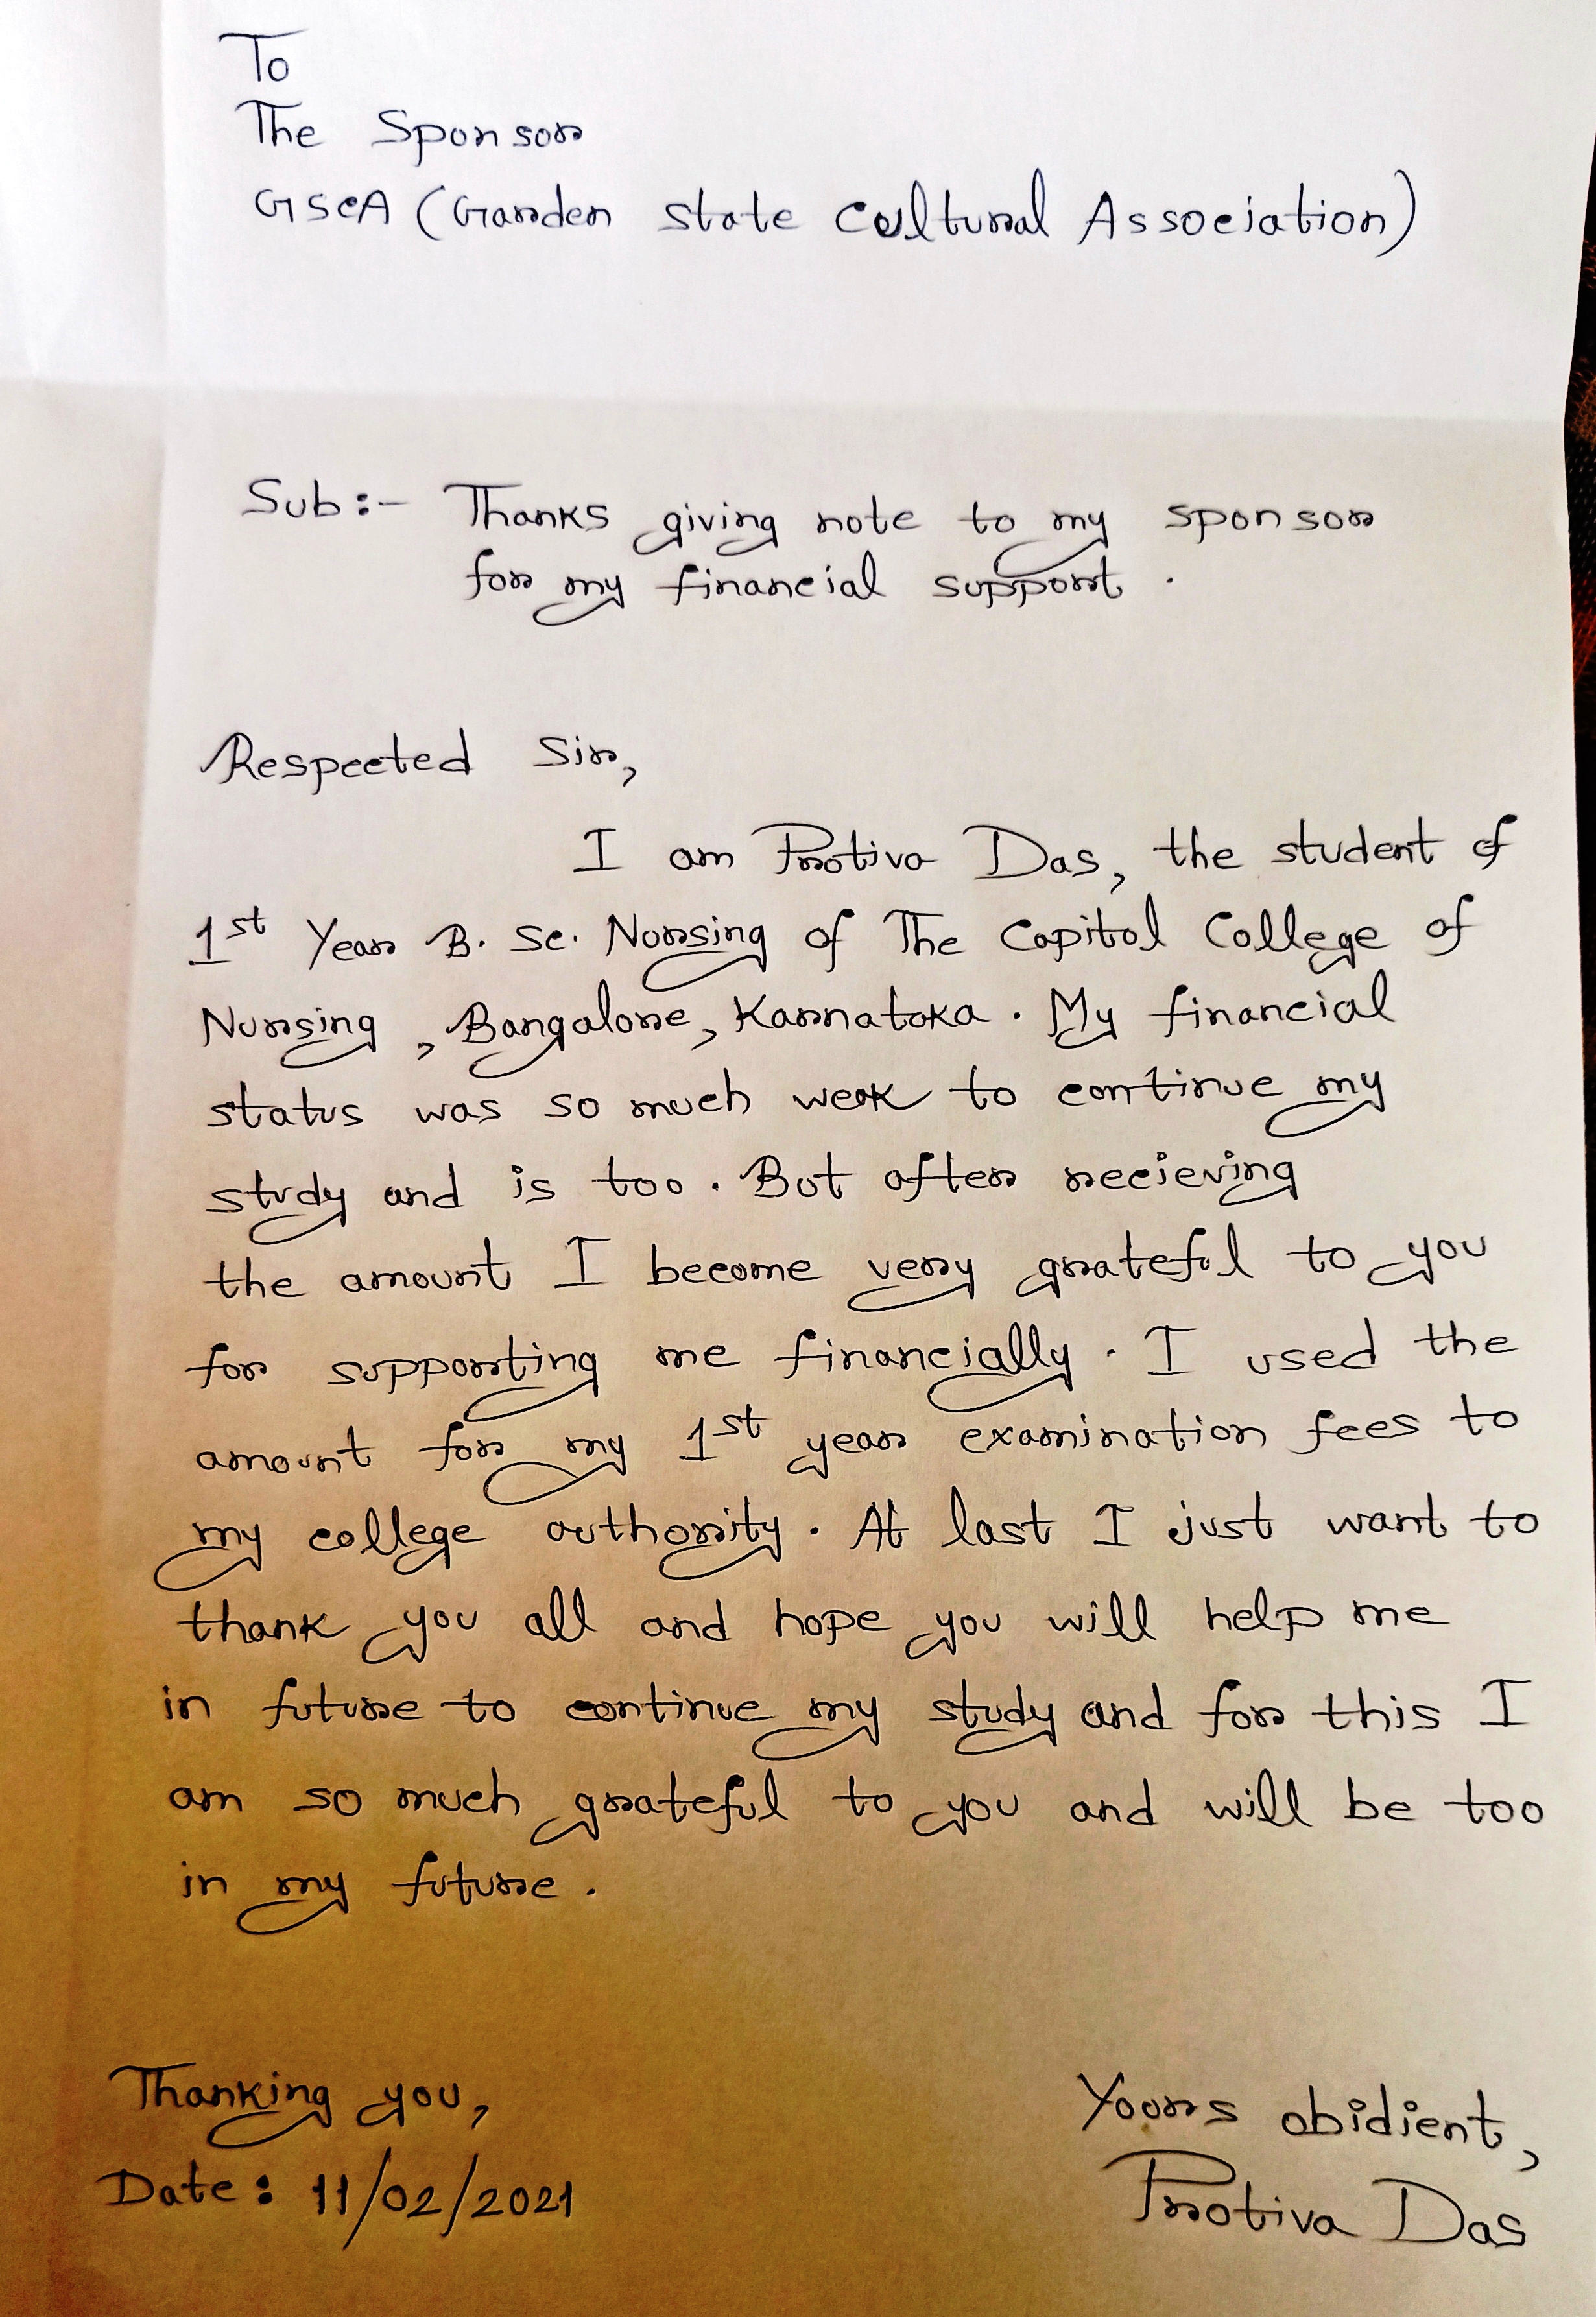 To
The Sponsor
GSCA (Garden State Cultural Association)
Sub:- Thanks giving note to my sponsor
for my financial support.
Respected Sir,
I am Protiva Das, the student of
1st Year B. Sc. Nursing of The Capitol College of
Nursing, Bangalore, Karnataka. My financial
status was so much weak to continue my
study and is too. But after recieving
the amount I become very grateful to you
for supporting me financially. I used the
amount for my 1st year examination fees to
my college authority. At last I just want to
thank you all and hope you will help me
in future to continue my study and for this I
am so much grateful to you and will be too
in my future.
Thanking you,
Yours obidient,
Date: 11/02/2021
Protiva Das